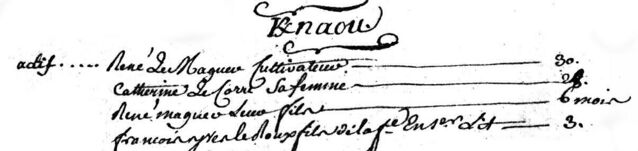 Kenaou
actif ..... René Le Magueur Cultivateur 30.
Catherine Le Corre Sa femme 28.
René magueur Leur fils 6 mois
françois yves le Roux fils de la fe En 1er Lit 3.